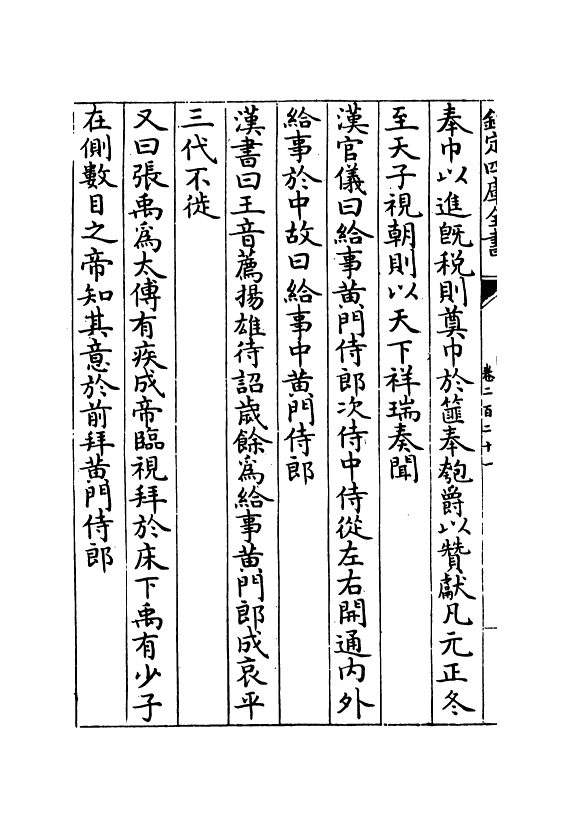 欽定四庫全書
卷二百二十一
奉巾以進旣稅則奠巾於篚奉匏爵以贊獻凡元正冬
至天子視朝則以天下祥瑞奏聞
漢官儀曰給事黄門侍郎次侍中侍從左右開通内外
給事於中故曰給事中黄門侍郎
漢書曰王音薦揚雄待詔歲餘爲給事黄門郎成哀平
三代不徙
又曰張禹爲太傅有疾成帝臨視拜於床下禹有少子
在側數目之帝知其意於前拜黄門侍郎